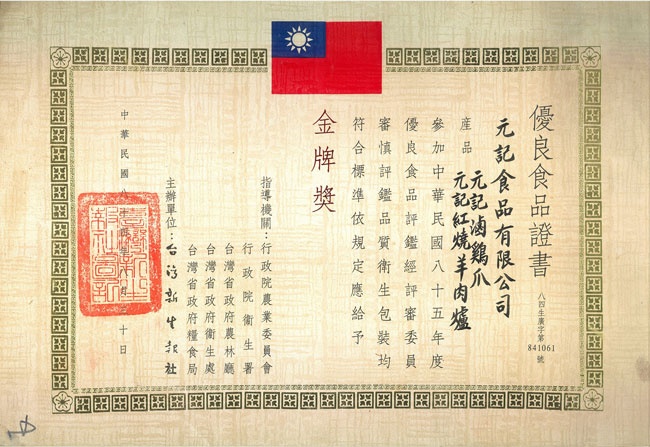 優良食品證書
八四生廣字第
841061
號
元記食品有限公司
產品 元記滷鷄爪
元記紅燒羊肉爐
參加中華民國八十五年度
優良食品評鑑經評審委員
審慎評鑑品質衛生包裝均
符合標準依規定應給予
金牌獎
指導機關：行政院農業委員會
行政院衞生署
台灣省政府農林廳
台灣省政府衛生處
台灣省政府糧食局
主辦單位：台灣新生報社
中華民國八
十日